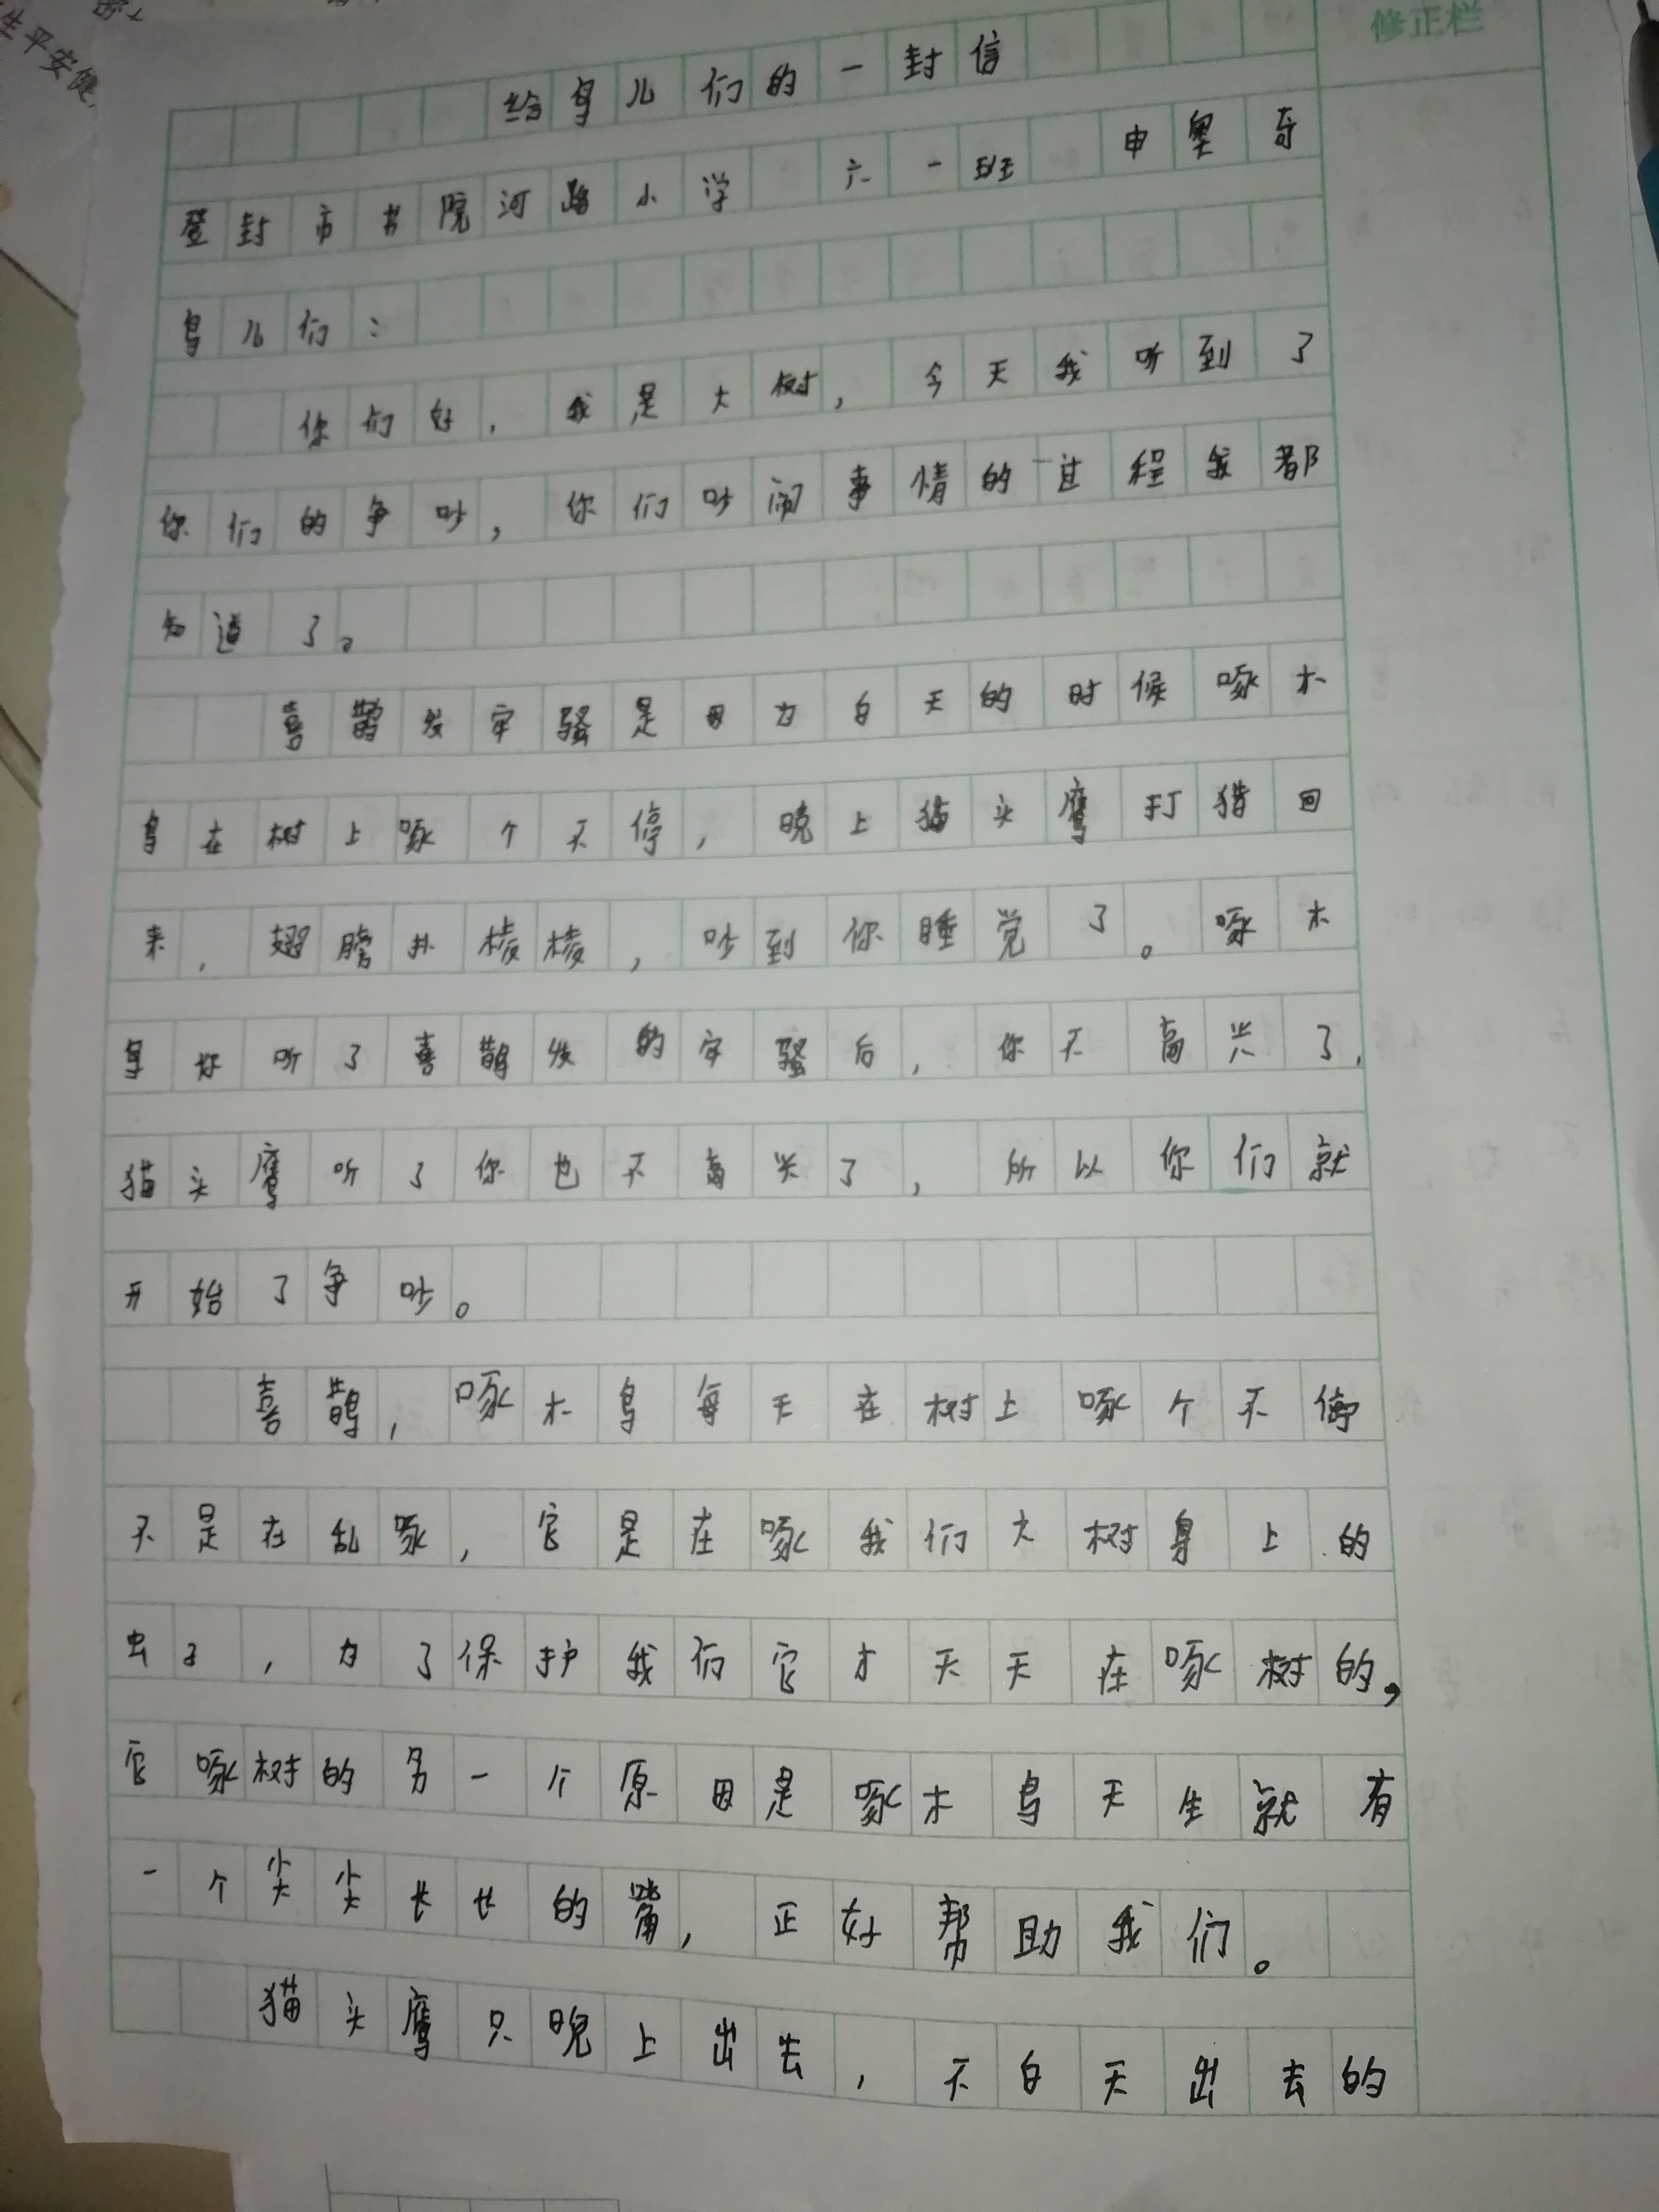 生平安健
修正栏
给鸟儿们的一封信
登封市书院河路小学 六一班 申奥奇
鸟儿们：
你们好，我是大树，今天我听到了
你们的争吵，你们吵闹事情的过程我都
知道了。
喜鹊发牢骚是因为白天的时候啄木
鸟在树上啄个不停，晚上猫头鹰打猎回
来，翅膀扑棱棱，吵到你睡觉了。啄木
鸟你听了喜鹊发的牢骚后，你不高兴了，
猫头鹰听了你也不高兴了，所以你们就
开始了争吵。
喜鹊，啄木鸟每天在树上啄个不停
不是在乱啄，它是在啄我们大树身上的
虫子，为了保护我们它才天天在啄树的，
它啄树的另一个原因是啄木鸟天生就有
一个尖尖长长的嘴，正好帮助我们。
猫头鹰只晚上出去，不白天出去的